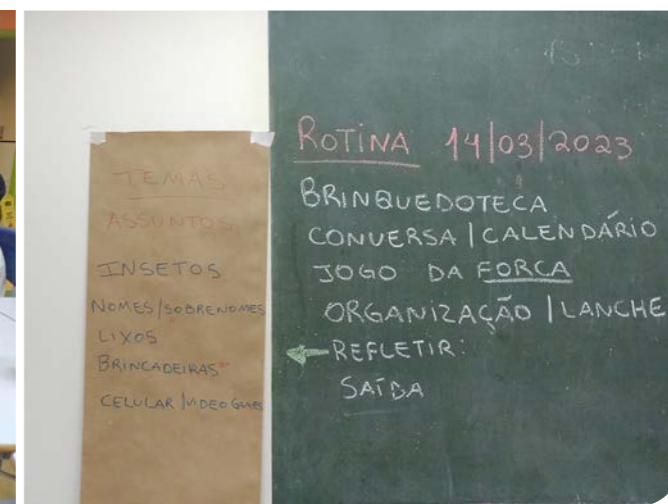 TEMAS
ASSUNTOS
INSETOS
NOMES/SOBRENOMES
LIXOS
BRINCADEIRAS
CELULAR/VIDEO GAMES
ROTINA 14/03/2023
BRINQUEDOTECA
CONVERSA/CALENDÁRIO
JOGO DA FORCA
ORGANIZAÇÃO/LANCHE
REFLETIR:
SAÍDA